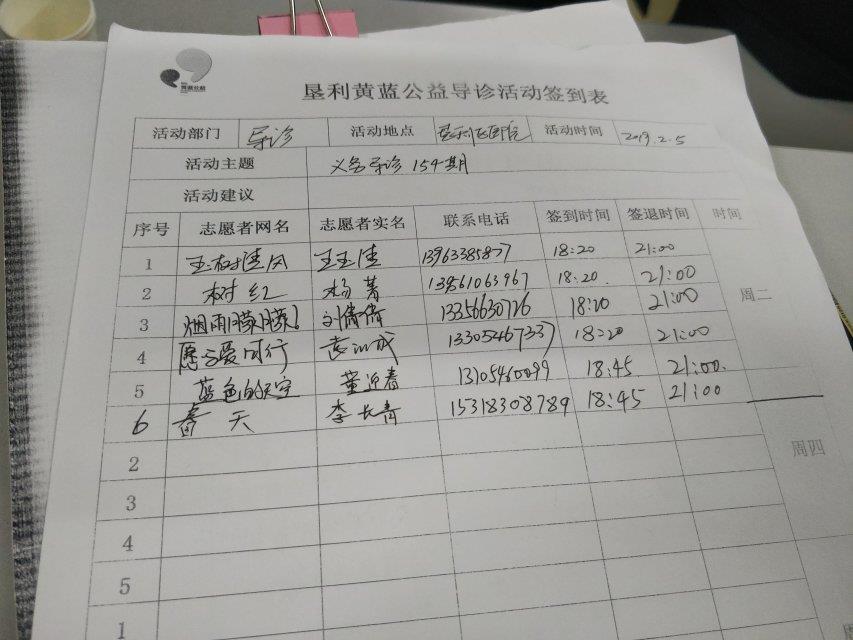 垦利黄蓝公益导诊活动签到表
活动部门 导诊 活动地点 垦利区医院 活动时间 2019.2.5
活动主题 义务导诊154期
活动建议
序号 志愿者网名 志愿者实名 联系电话 签到时间 签退时间 时间
1 玉树 18:20 21:00
2 树红 杨菁 13561063967 18:20. 21:00
周二
3 烟雨朦朦 刘倩倩 13356630726 18:20 21:00
4 愿与爱同行 13305467337 18:20 21:00
5 蓝色的天空 董迎春 13105460099 18:45 21:00.
6 春天 李长青 15318308789 18:45 21:00
2 周四
3
4
5
1